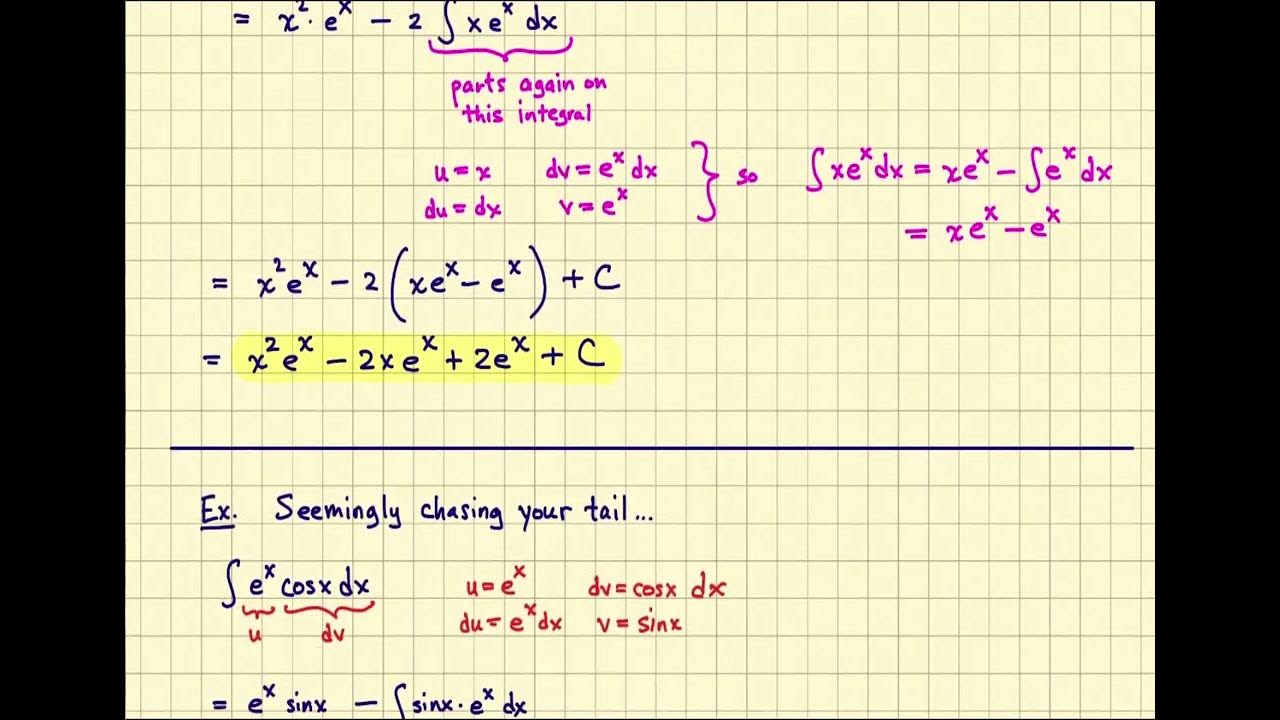 = x²·eˣ − 2 ∫ x eˣ dx
parts again on
this integral
u = x dv = eˣ dx } so ∫ xeˣ dx = xeˣ − ∫ eˣ dx
du = dx v = eˣ
= xeˣ − eˣ
= x²eˣ − 2(xeˣ − eˣ) + C
= x²eˣ − 2xeˣ + 2eˣ + C
Ex. Seemingly chasing your tail...
∫ eˣ cosx dx u = eˣ dv = cosx dx
u dv du = eˣ dx v = sinx
= eˣ sinx − ∫ sinx · eˣ dx